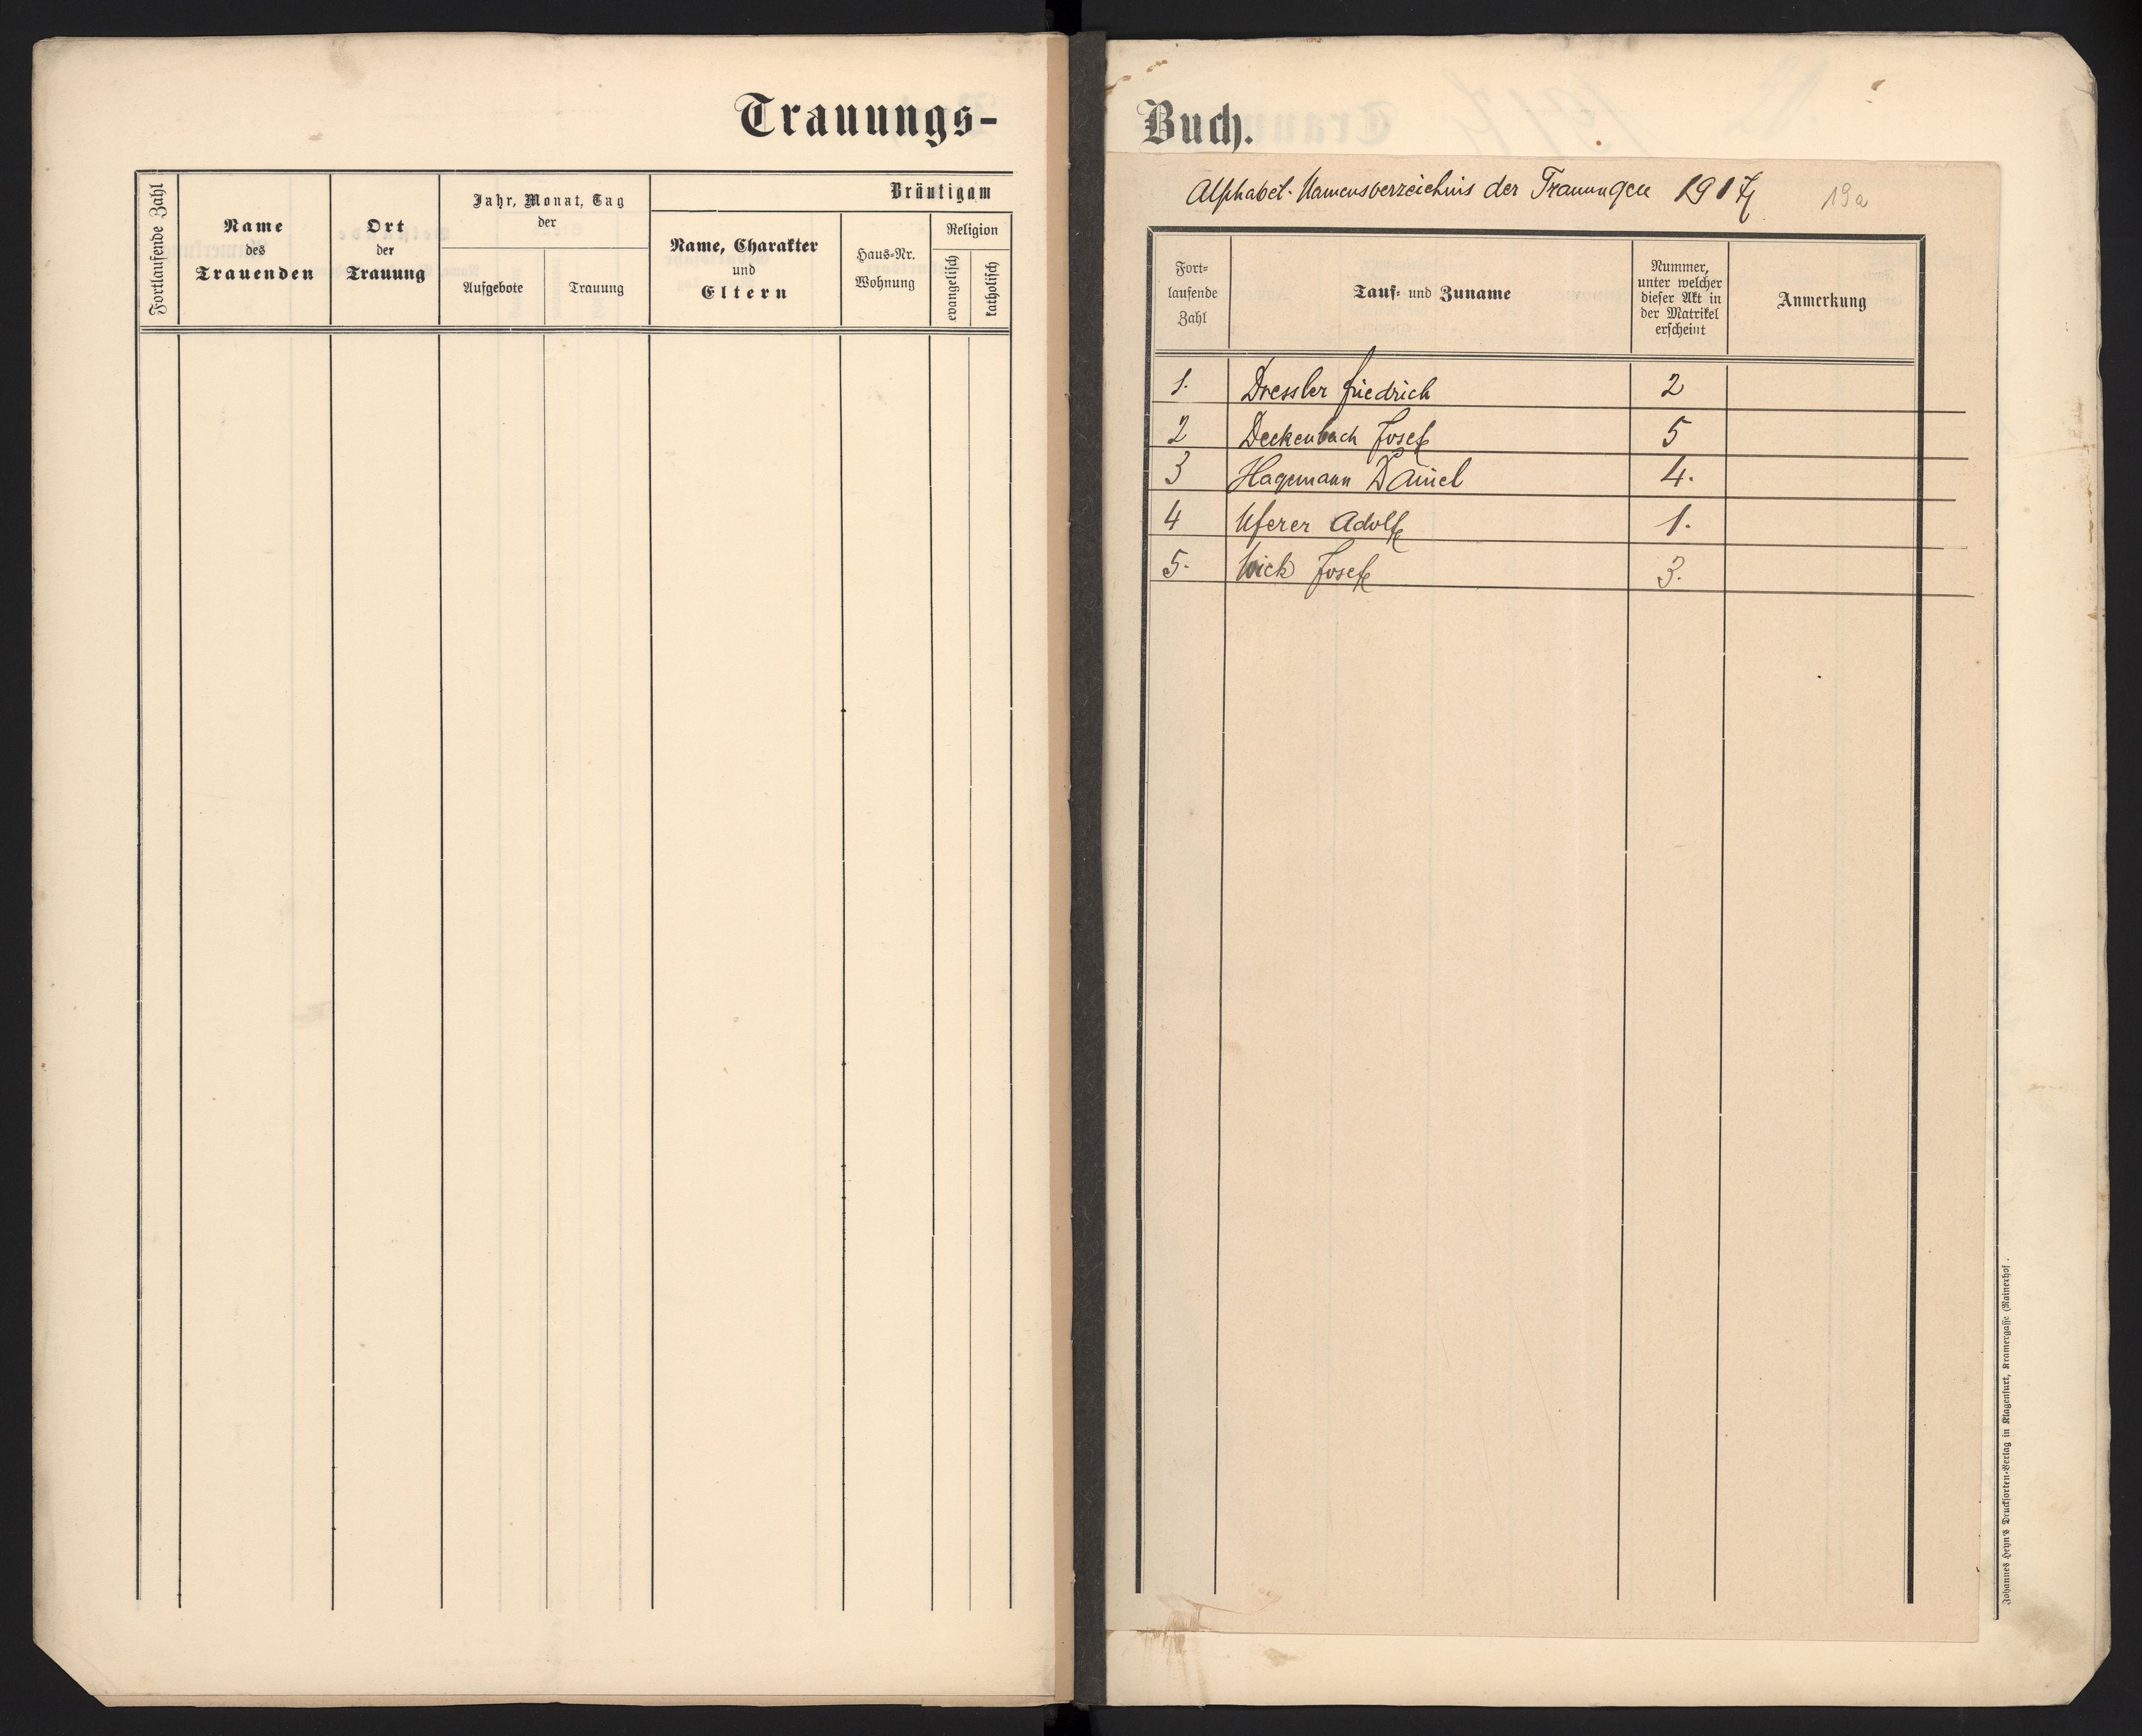 Trauungs-
Fortlaufende Zahl
Name
des
Trauenden
Ort
der
Trauung
Jahr, Monat, Tag
der
Aufgebote
Trauung
Bräutigam
Name, Charakter
und
Eltern
Haus-Nr.
Wohnung
Religion
evangelisch
katholisch
Buch.
Alphabet. Namensverzeichnis der Trauungen 1917
19a
Fort-
laufende
Zahl
Tauf- und Zuname
Nummer,
unter welcher
dieser Akt in
der Matrikel
erscheint
Anmerkung
1. Dressler Friedrich 2
2 Deckenbach Josef 5
3 Hagemann Daniel 4.
4 Uferer Adolf 1.
5. Wick Josef 3.
Johannes Heyn's Drucksorten-Verlag in Klagenfurt, Kramergasse (Rainerhof).